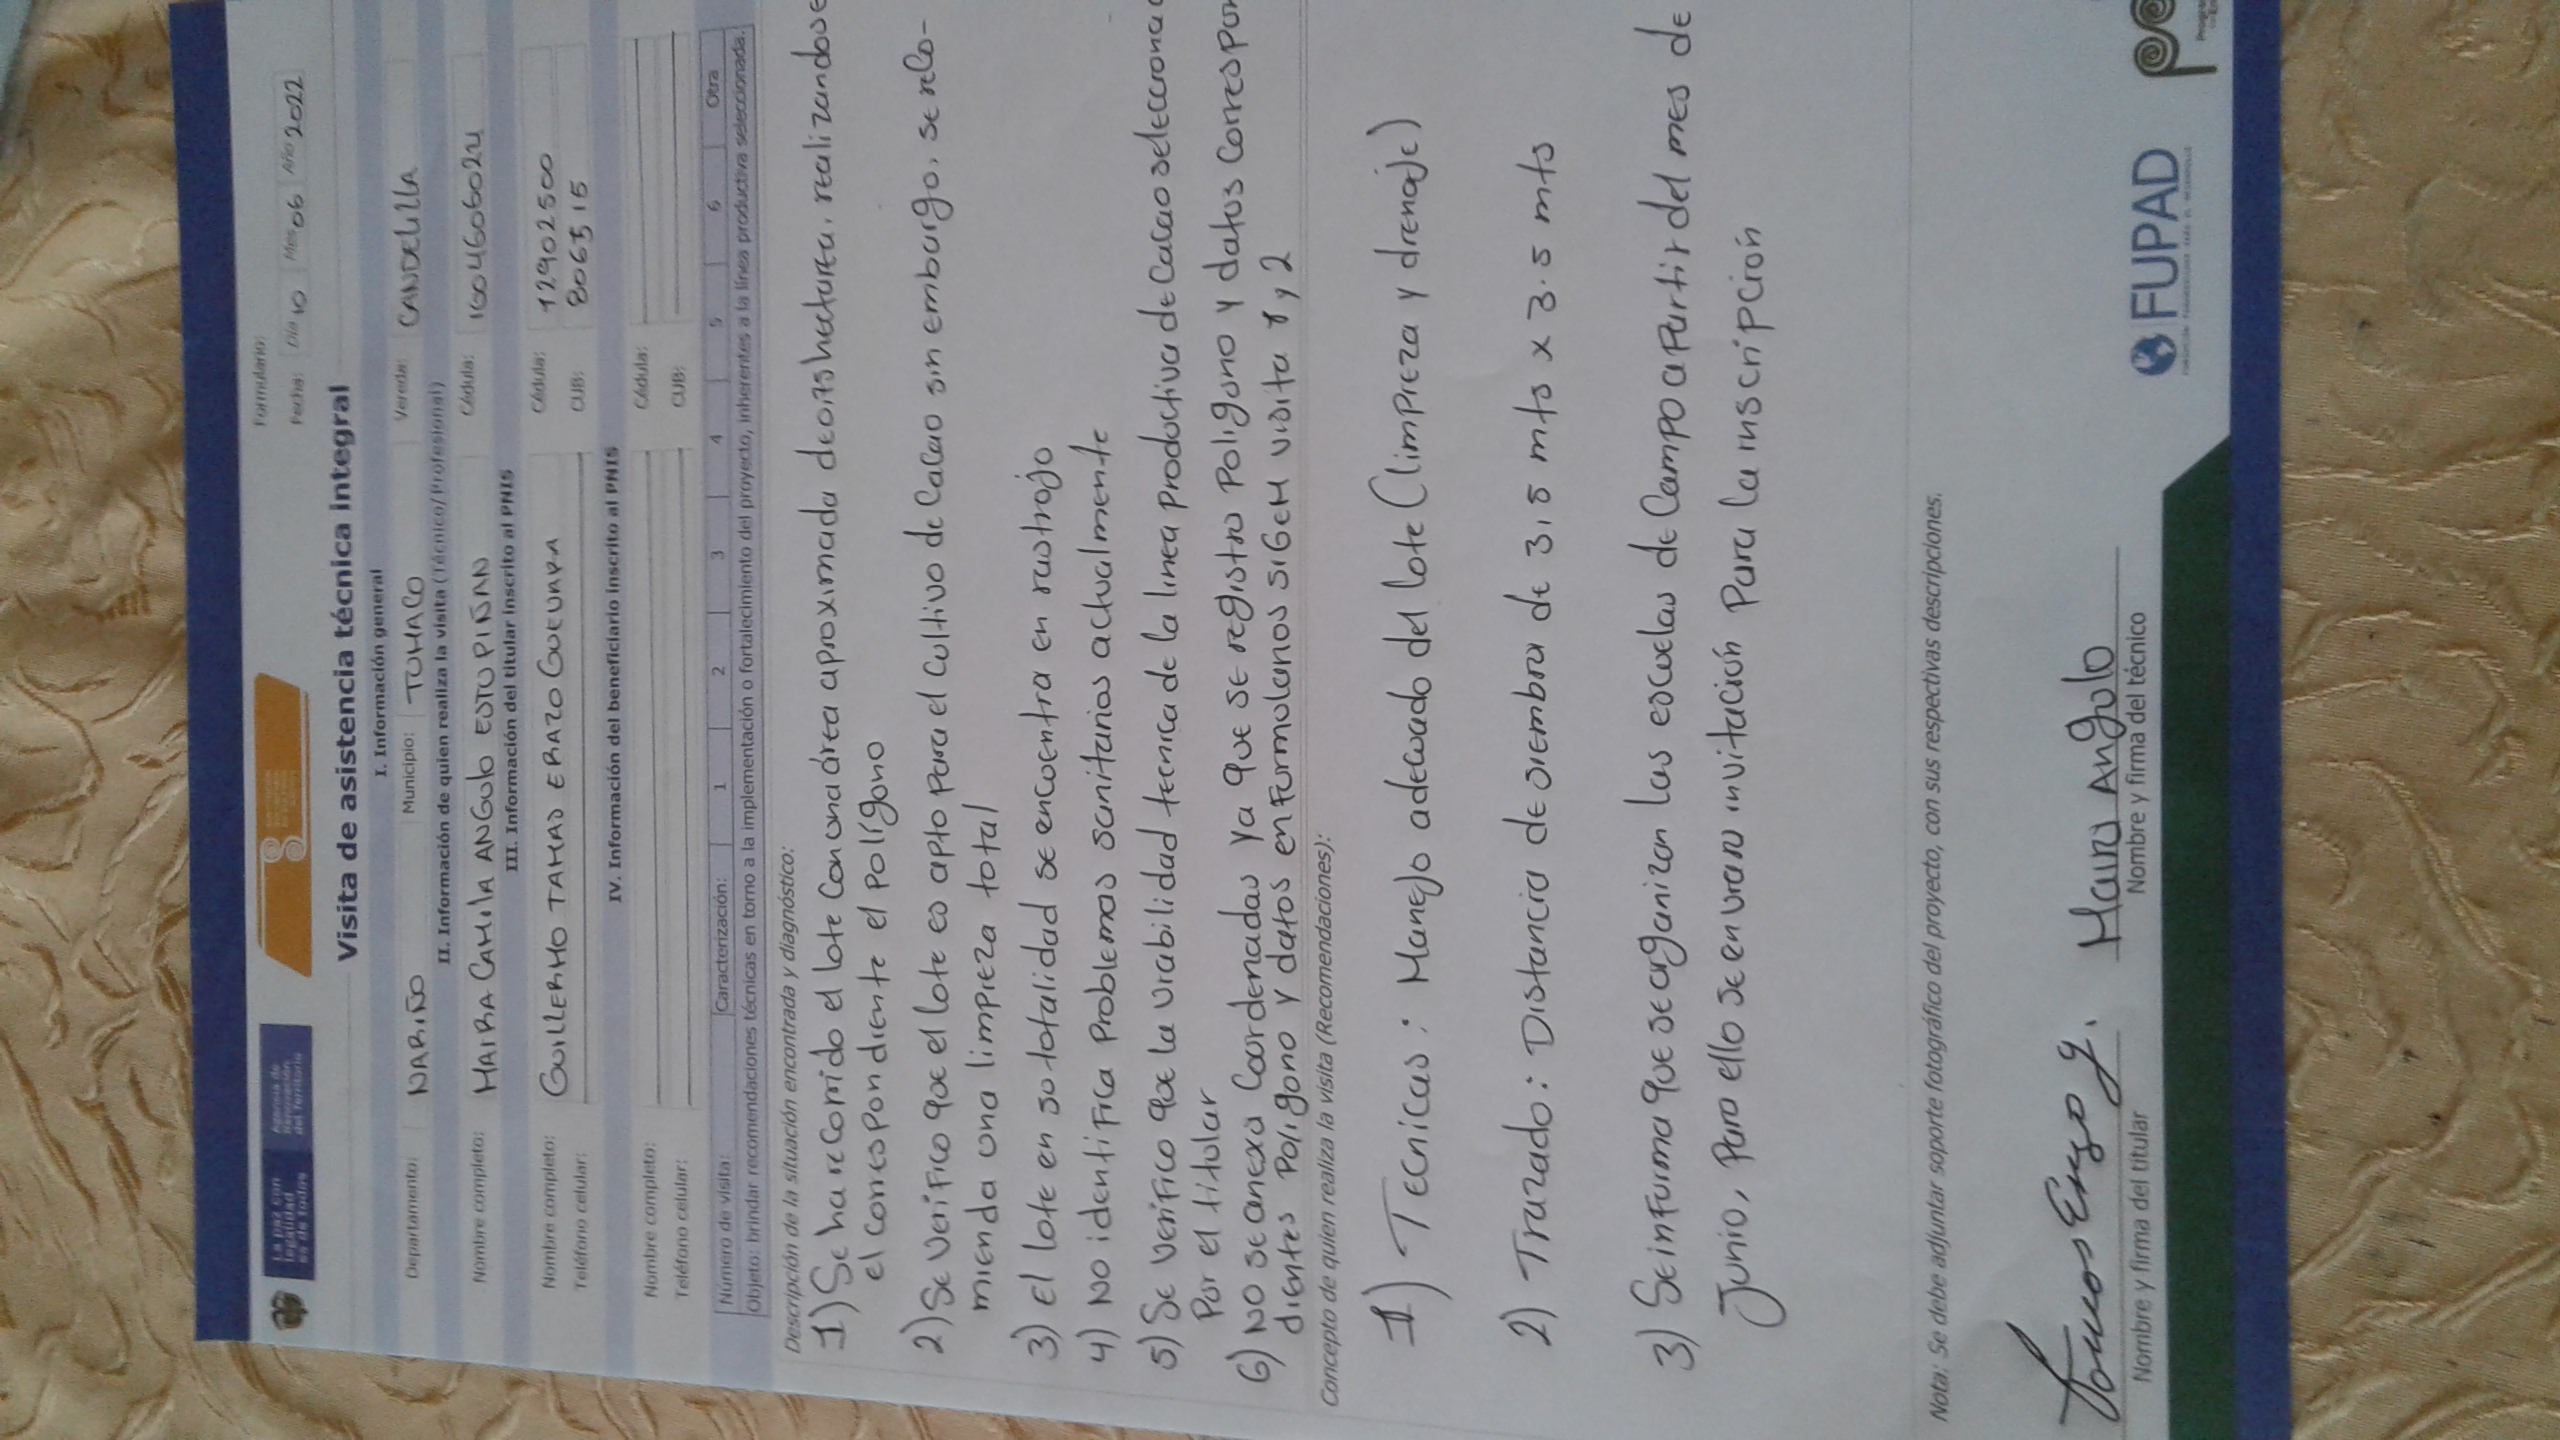 La paz con
legalidad
es de todos
Agencia de
Renovación
del Territorio
Formulario:
Fecha: Día 10 Mes 06 Año 2022
Visita de asistencia técnica integral
I. Información general
Departamento: NARIÑO Municipio: TUMACO Vereda: CANDELILLA
II. Información de quien realiza la visita (Técnico/Profesional)
Nombre completo: MAIRA CAMILA ANGULO ESTUPIÑAN Cédula: 1004606024
III. Información del titular inscrito al PNIS
Nombre completo: GUILLERMO TAMAS ERAZO GUEVARA Cédula: 12902500
Teléfono celular: CUB: 806315
IV. Información del beneficiario inscrito al PNIS
Nombre completo: Cédula:
Teléfono celular: CUB:
Número de visita: Caracterización: 1 2 3 4 5 6 Otra
Objeto: brindar recomendaciones técnicas en torno a la implementación o fortalecimiento del proyecto, inherentes a la línea productiva seleccionada.
Descripción de la situación encontrada y diagnóstico:
1) Se ha recorrido el lote con una área aproximada de hectarea. realizandose
el correspondiente el polígono
2) Se verifico que el lote es apto para el cultivo de cacao sin embargo, se reco-
mienda una limpieza total
3) el lote en su totalidad se encuentra en rastrojo
4) No identifica problemas sanitarios actualmente
5) Se verifico que la viabilidad tecnica de la linea productiva de cacao
Por el titular
6) No se anexa coordenadas ya que se registro poligono y datos
dientes poligono y datos en formularios SIGEM visita 1 y 2
Concepto de quien realiza la visita (Recomendaciones):
1) Tecnicas: Manejo adecuado del lote (limpieza y drenaje)
2) Trazado: Distancia de siembra de 3,5 mts x 3.5 mts
3) Se informa que se organizan las escuelas de campo a partir del mes de
Junio, para ello se enviara invitación para la inscripción
Nota: Se debe adjuntar soporte fotográfico del proyecto, con sus respectivas descripciones.
Maira Angulo
Nombre y firma del titular Nombre y firma del técnico
FUPAD